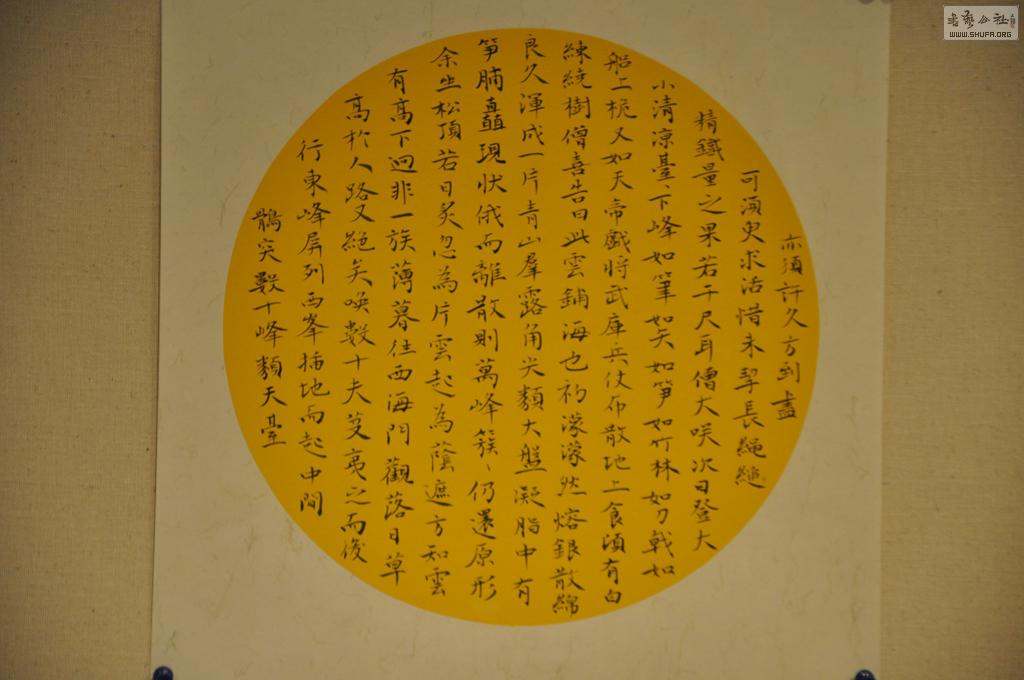 亦須許久方到盡
可須臾求活惜未挈長繩縋
精鐵量之果若干尺耳僧大咲次日登大
小清凉臺、下峰如筆如矢如笋如竹林如刀戟如
船上桅又如天帝戲將武庫兵仗布散地上食頃有白
練繞樹僧喜告曰此雲鋪海也初濛濛然熔銀散綿
良久渾成一片青山羣露角尖類大盤凝脂中有
笋脯矗現狀俄而離散則萬峰簇、仍還原形
余坐松頂苦日炙忽為片雲起為蔭遮方知雲
有高下迥非一族薄暮往西海門觀落日草
高於人路又絕矣喚數十夫芟夷之而後
行東峰屏列西峯插地而起中間
鶻突數十峰類天臺
書藝公社
WWW.SHUFA.ORG